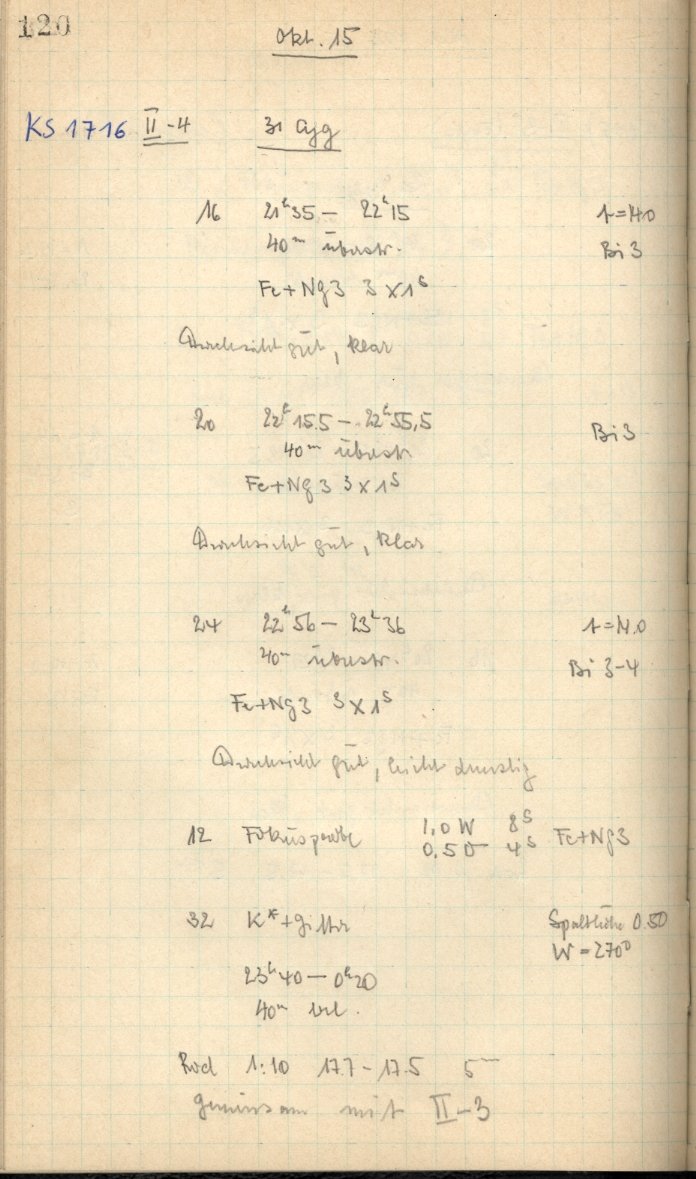 120
Okt. 15
KS 1716 II-4 31 Cyg
16 21h35 – 22h15 t=14.0
40m überstr. Bi 3
Fe+Ng3 3x1s
Durchsicht gut, klar
20 22h15.5 – 22h55,5 Bi 3
40m überstr
Fe+Ng3 3x1s
Durchsicht gut, klar
24 22h56 – 23h36
40m überstr. Bi 3-4
Fe+Ng3 3x1s
Durchsicht gut, leicht dunstig
12 Fokusprobe 1,0 W 8s Fe+Ng3
0.50 4s
32 K*+Gitter Spalthöhe 0.50
W=270°
23h40 – 0h20
40m bel.
1:10 17.7 – 17.5 5m
gemeinsam mit II-3